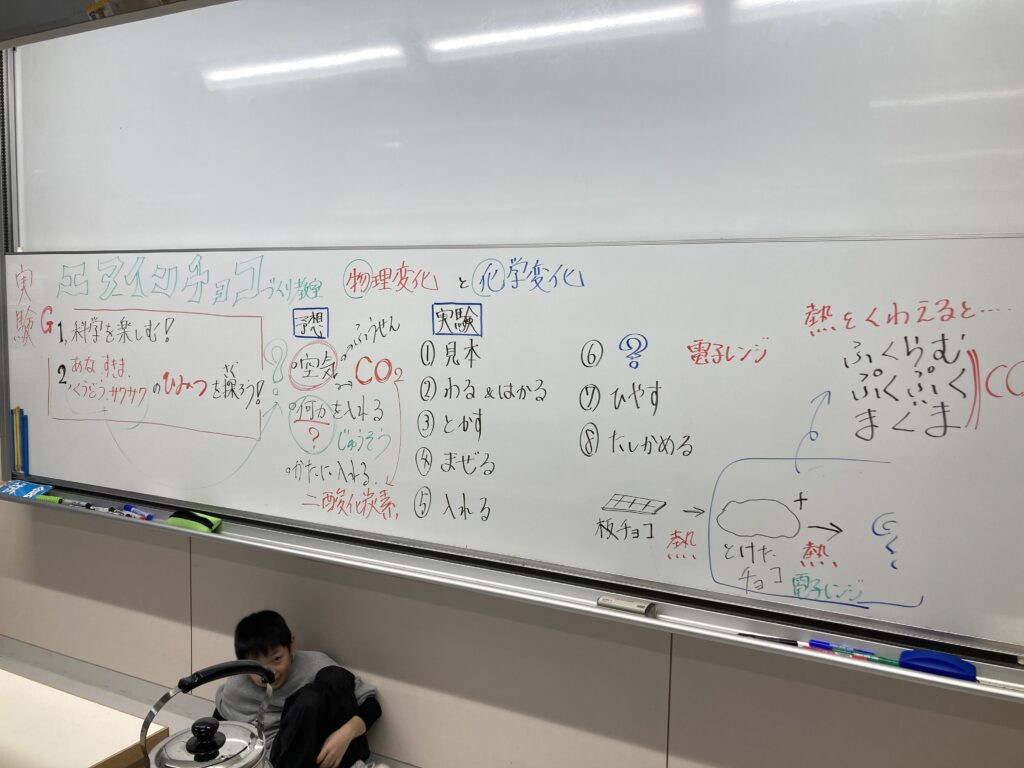 実験
エアインチョコづくり教室
物理変化と化学変化
G
1, 科学を楽しむ!
2, あな、すきま、くうどう、サクサクのひみつを探ろう!
さぐ
?
予想
空気
ふうせん
CO2
何かを入れる
?
じゅうそう
かたに入れる.
二酸化炭素,
実験
① 見本
② わる&はかる
③ とかす
④ まぜる
⑤ 入れる
⑥ ?
電子レンジ
⑦ ひやす
⑧ たしかめる
熱をくわえると....
ふくらむ
ぷくぷく
まぐま
CO
板チョコ
→
熱
とけたチョコ
+
→
熱
電子レンジ